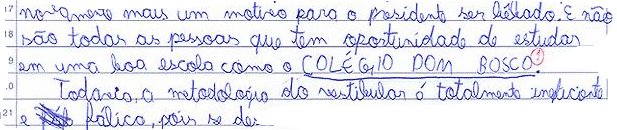 17 novamente mais um motivo para o presidente ser hostado. E não
18 são todas as pessoas que tem oportunidade de estudar
9 em uma boa escola como o COLÉGIO DOM BOSCO.
0 Todavia, a metodologia do vestibular é totalmente ineficiente
21 e falica, pois se de